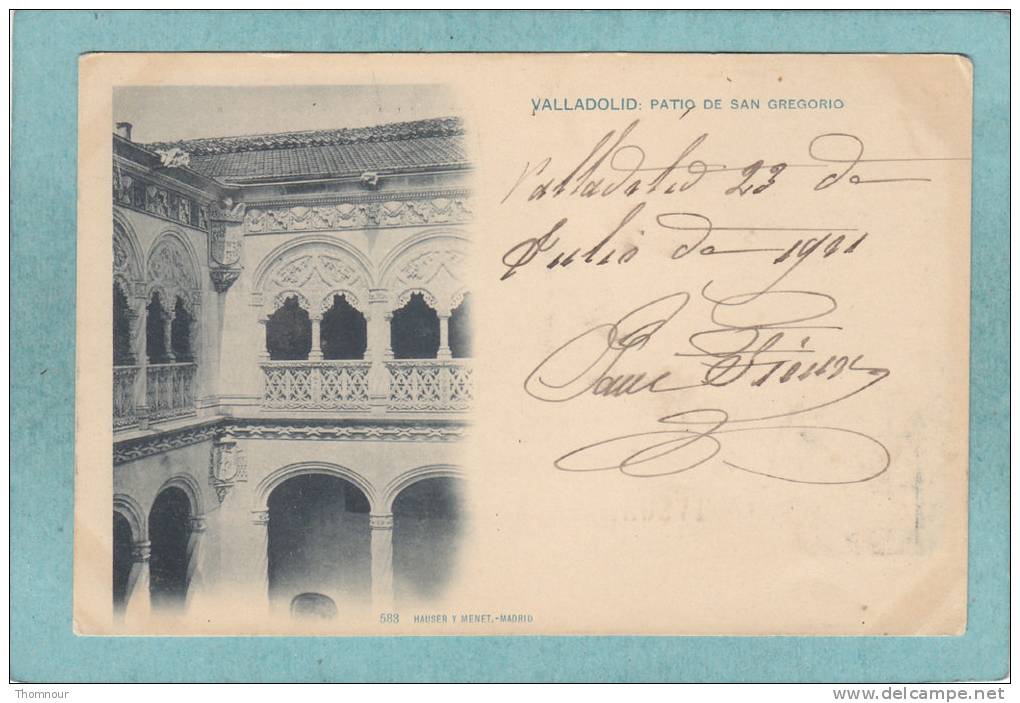 VALLADOLID: PATIO DE SAN GREGORIO
Valladolid 23 de
Julio de 1901
583 HAUSER Y MENET.-MADRID
Thomnour
http://www.delcampe.net